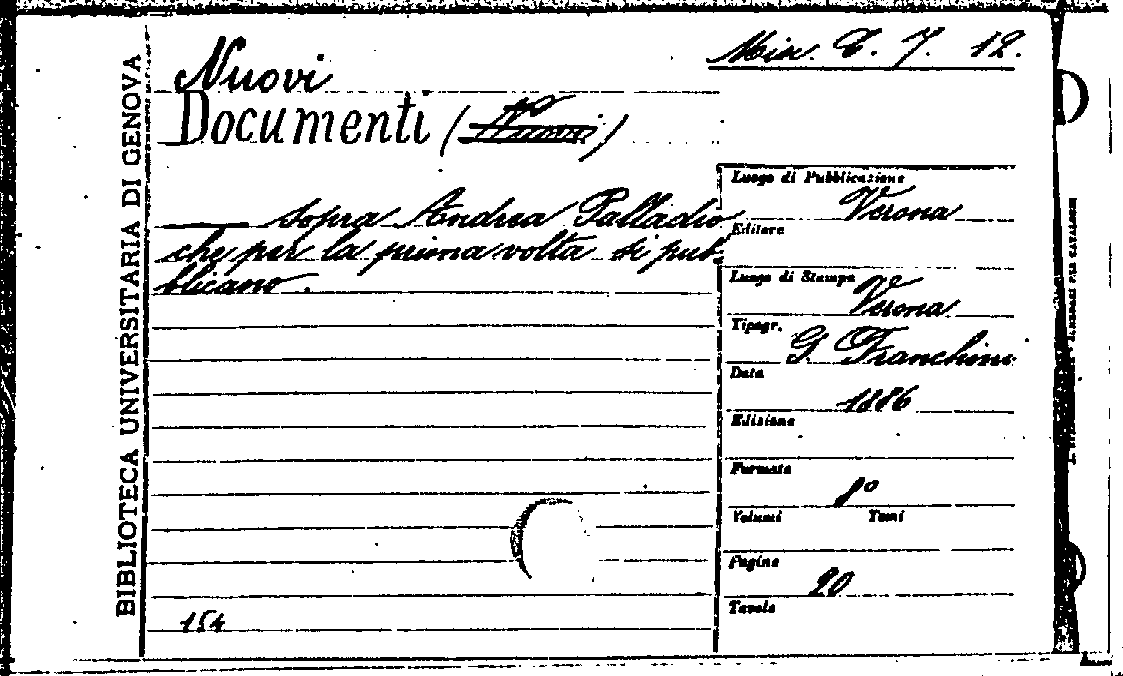 Misc. C. 7. 12.
Nuovi
Documenti (Nuovi)
sopra Andrea Palladio
che per la prima volta si pub-
blicano.
154
BIBLIOTECA UNIVERSITARIA DI GENOVA
Luogo di Pubblicazione
Verona
Editore
Luogo di Stampa
Verona
Tipogr.
G. Franchini
Data
1886
Edizione
Formato
8º
Volumi Tomi
Pagine
20
Tavole